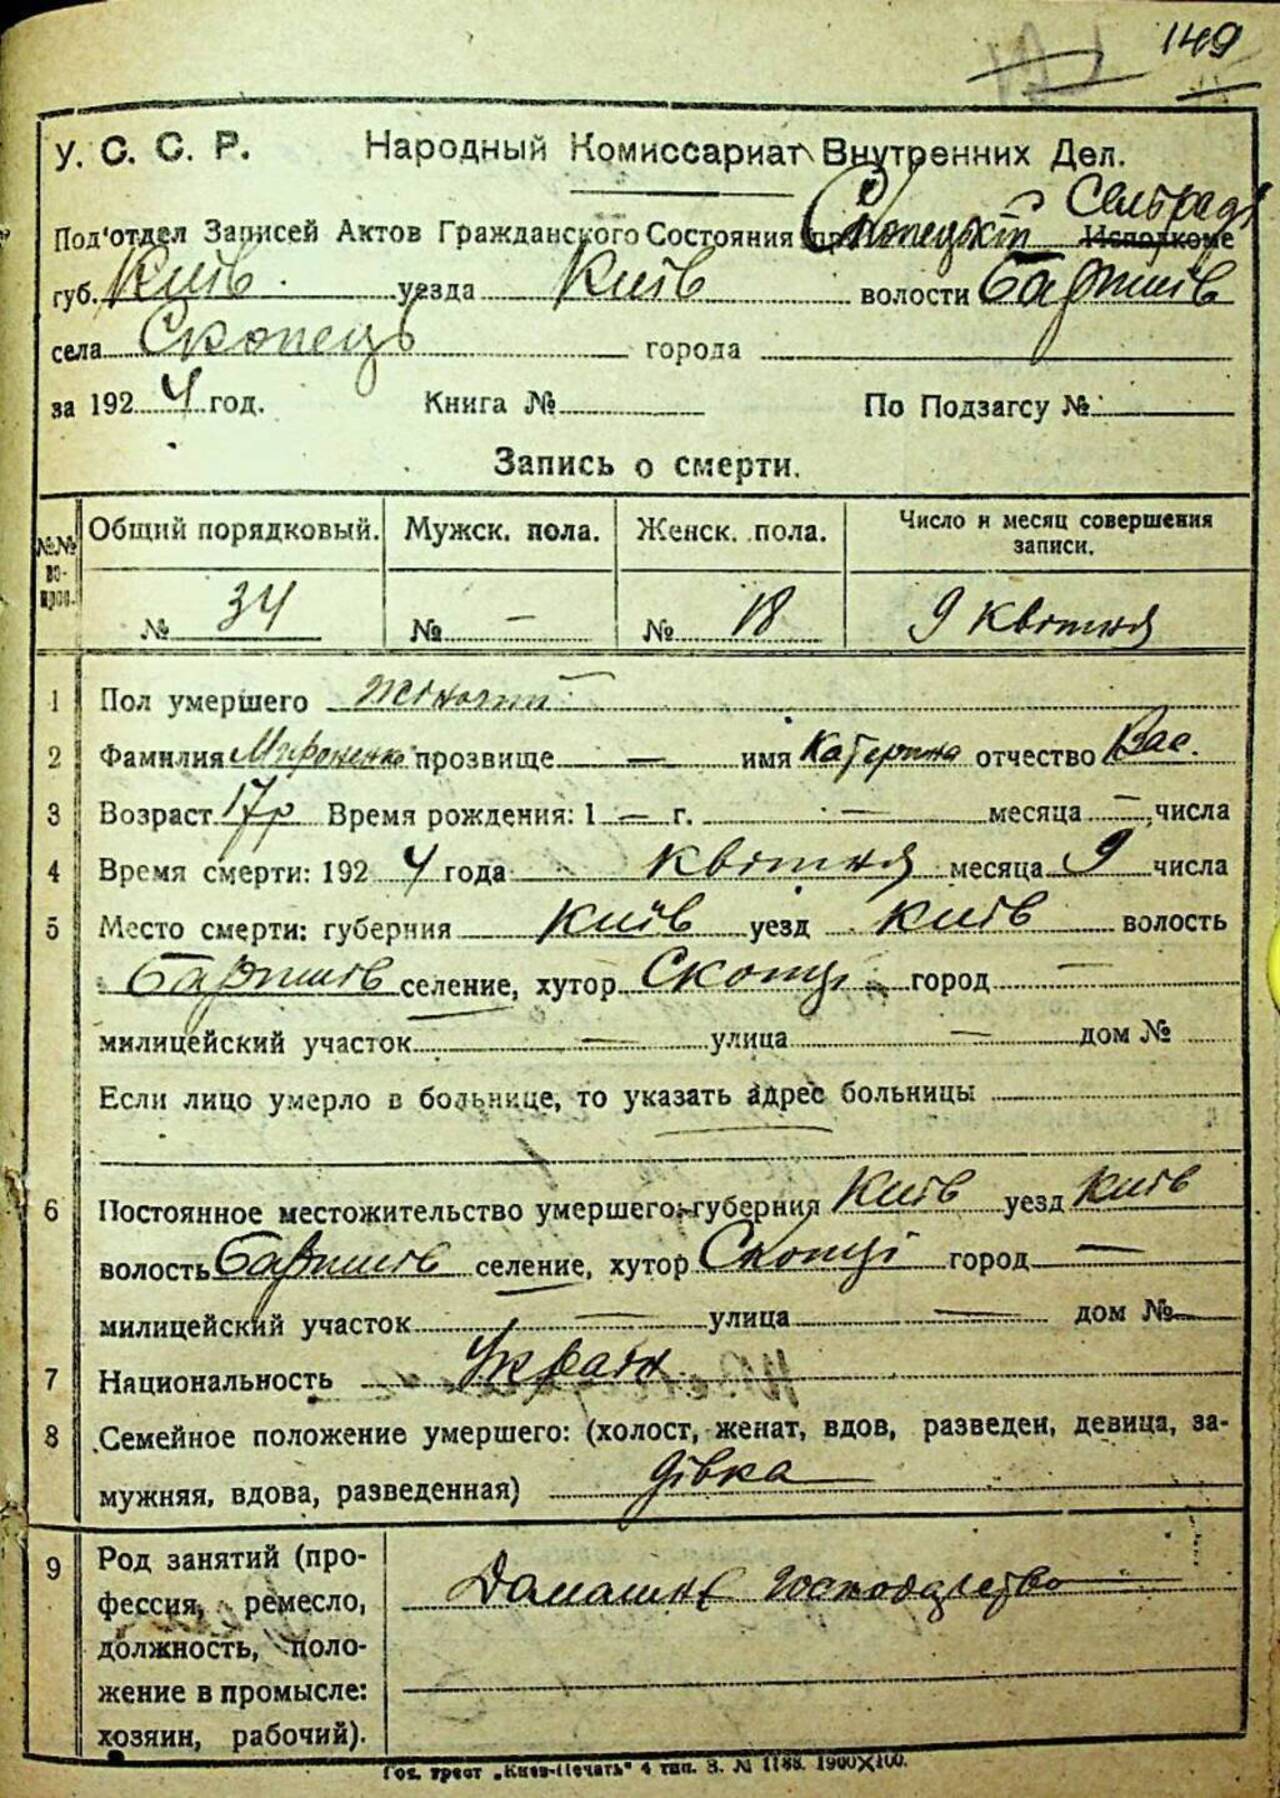 149
У. С. С. Р. Народный Комиссариат Внутренних Дел.
Сельради
Под'отдел Записей Актов Гражданского Состояния при Скопецькій Исполкоме
губ. Київ уезда Київ волости Баришів
села Скопець города
за 1924 год. Книга № По Подзагсу №
Запись о смерти.
№№ во-прос. Общий порядковый. Мужск. пола. Женск. пола. Число и месяц совершения записи.
№ 34 № — № 18 9 квітня
1 Пол умершего жіночий
2 Фамилия Мироненко прозвище — имя Катерина отчество Вас.
3 Возраст 17 р Время рождения: 1 — г. — месяца — числа
4 Время смерти: 1924 года квітня месяца 9 числа
5 Место смерти: губерния Київ уезд Київ волость
Баришів селение, хутор Скопці город —
милицейский участок — улица — дом №
Если лицо умерло в больнице, то указать адрес больницы
6 Постоянное местожительство умершего: губерния Київ уезд Київ
волость Баришів селение, хутор Скопці город —
милицейский участок — улица — дом № —
7 Национальность Україн
8 Семейное положение умершего: (холост, женат, вдов, разведен, девица, за-
мужняя, вдова, разведенная) дівка
9 Род занятий (про- Домашнє господарство
фессия, ремесло,
должность, поло-
жение в промысле:
хозяин, рабочий).
Гос. трест „Киев-Печать" 4 тип. З. № 1188. 1900×100.